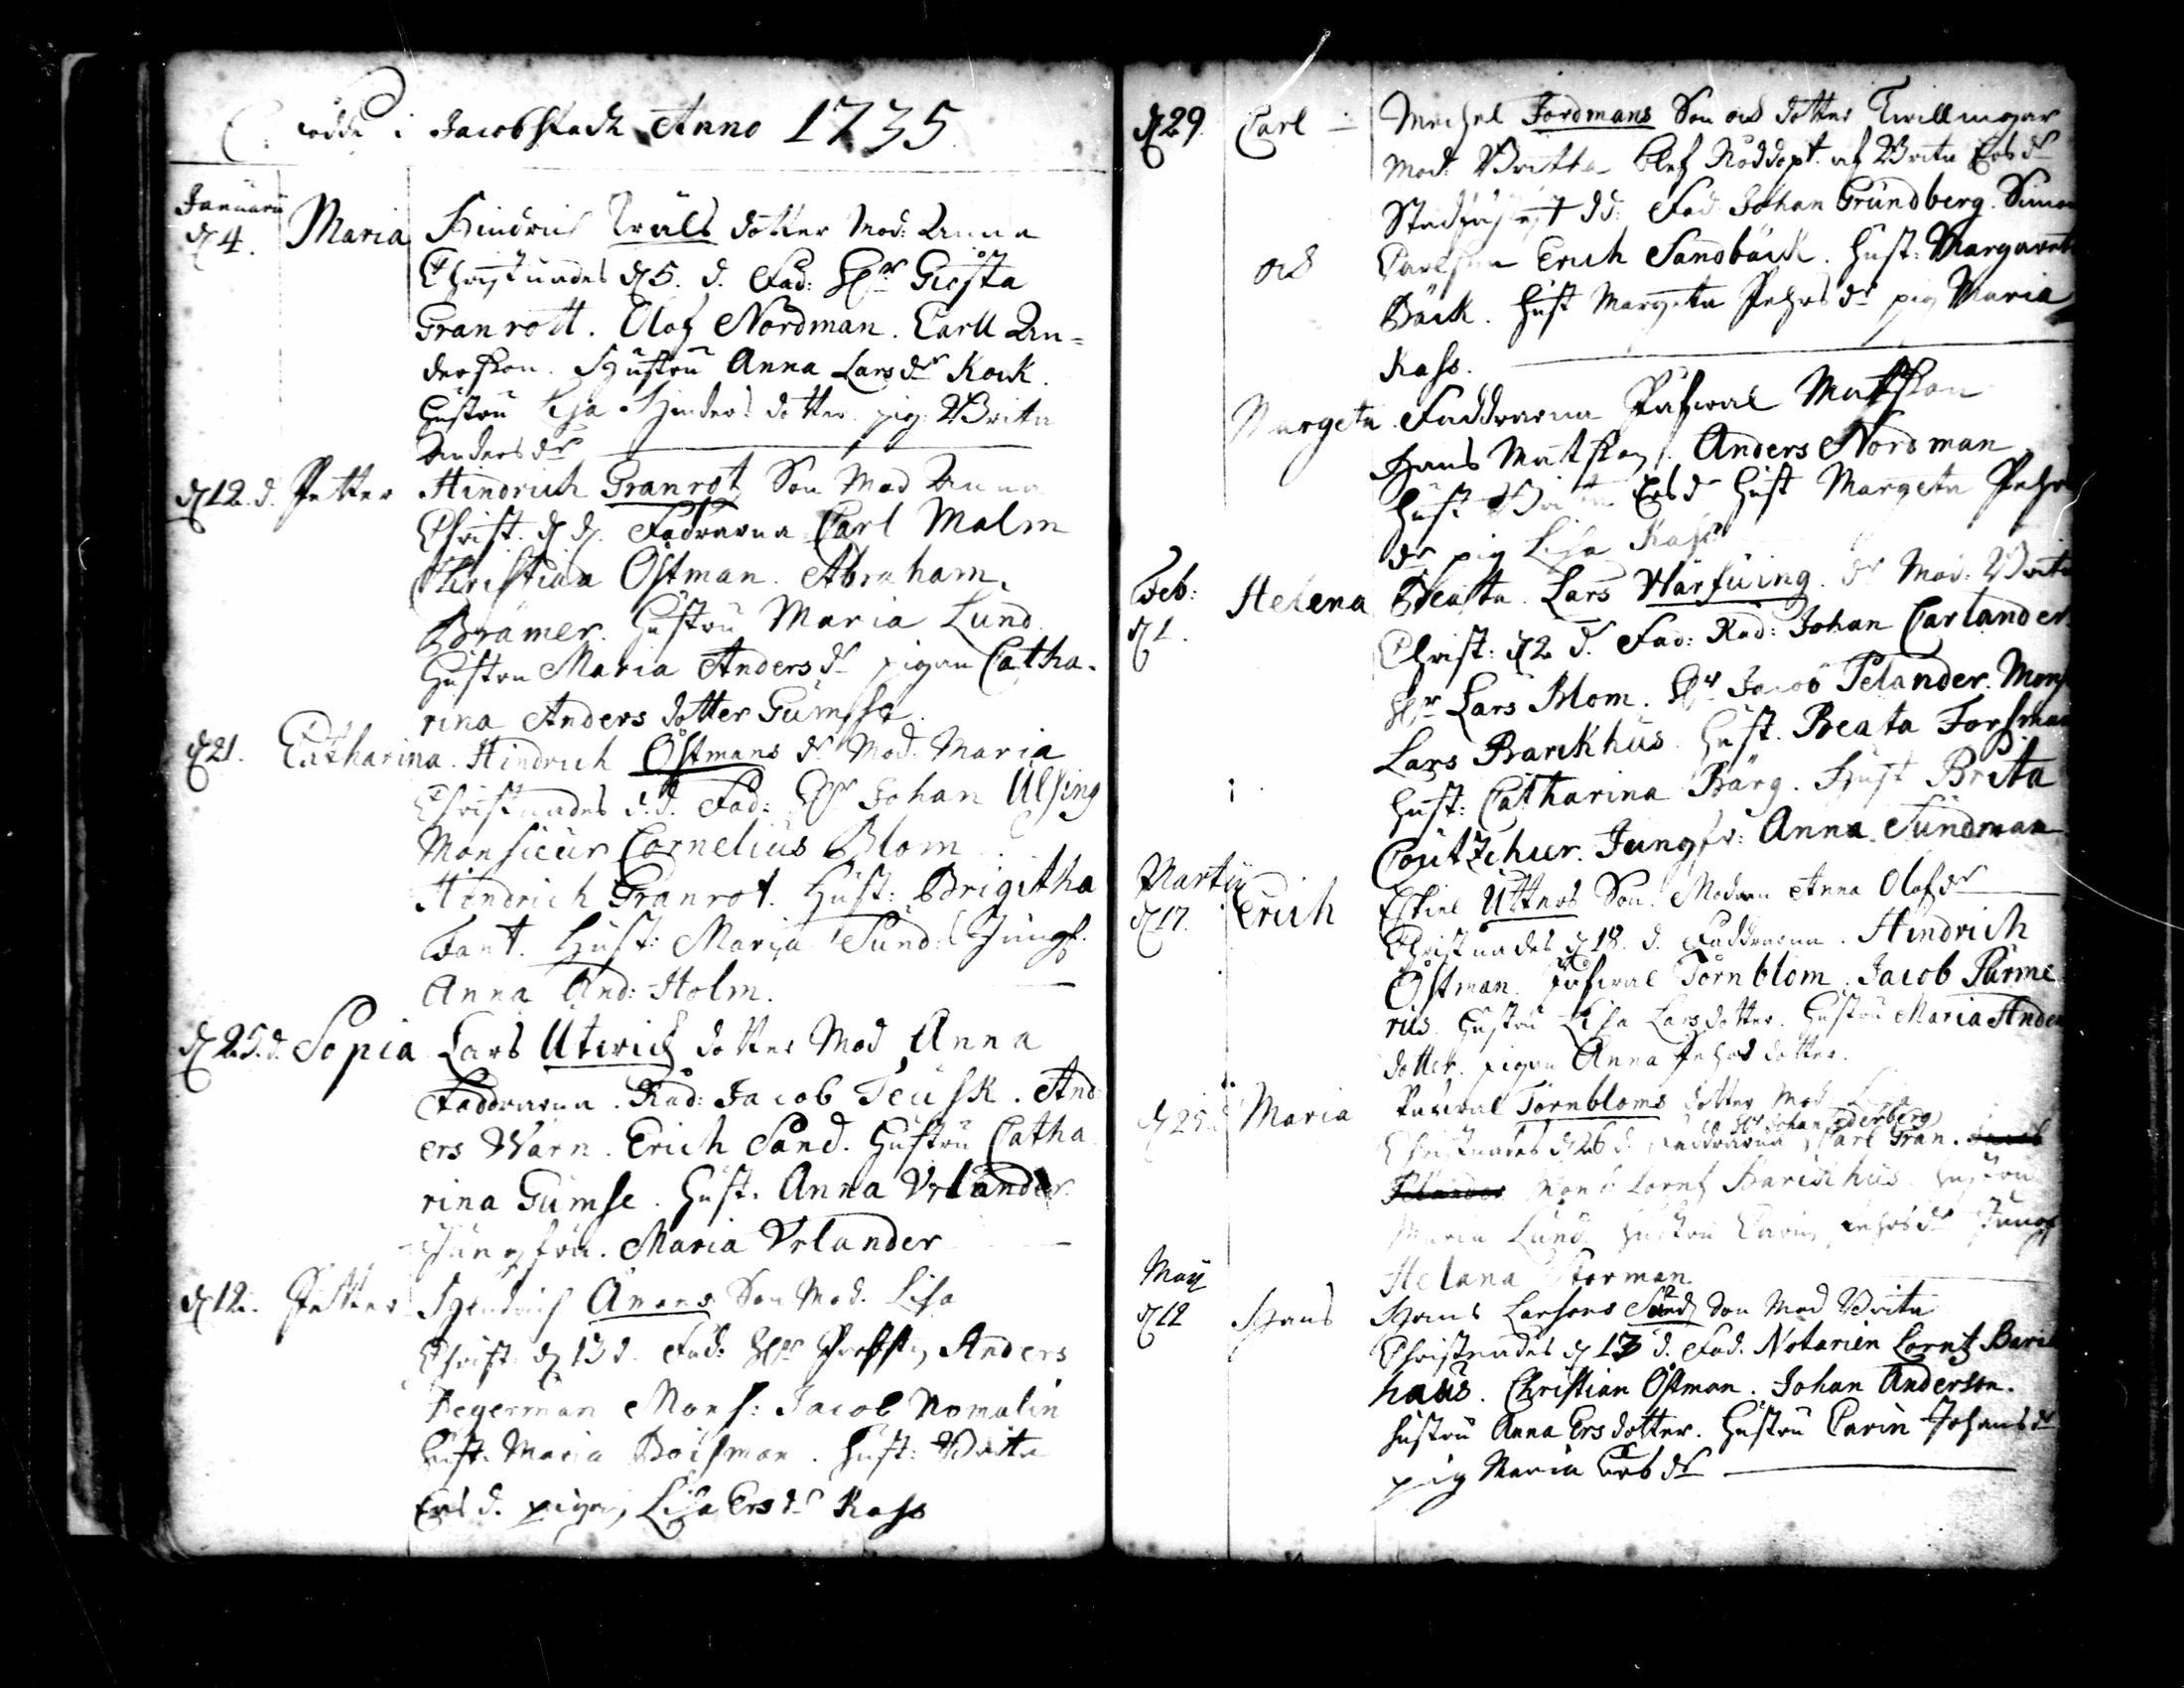 Födde i Jacobstadh Anno 1735.
Januarii
d 4. Maria Hindrich Träls dotter Mod: Anna
Christnades d 5. d. Fad: Hr Giösta
Granrott. Olof Nordman. Carll An=
dersson. Hustru Anna Larsdr Kock.
Hustru Lisa Hinders dotter. pig: Britta
Andersdr
d 12. d. Petter Hindrich Granrot Son Mod Anna
Christ. d d. Fadrarna Carl Malm
Christian Östman. Abraham
Brämer. Hustru Maria Lund.
Hustru Maria Andersdr pigan Catha-
rina Anders dotter Gumse.
d 21. Catharina. Hindrich Östmans dr Mod. Maria
Christnades d. d. Fad: Hr Johan Ulsing
Monsieur Cornelius Blom
Hindrich Granrot. Hust: Brigitha
Fant. Hust: Maria Sund: Jungf.
Anna And: Holm.
d 25. d. Sopia Lars Utwich dotter Mod Anna
Faddrarna. Råd: Jacob Teusk. And-
ers Warn. Erich Sand. Hustru Catha
rina Gumse. Hust. Anna Vrlander.
Jungfru. Maria Vrlander
d 12. Petter Hindrich Åmans Son Mod. Lisa
Christ. d 13 d. Fad: Hr Anders
Degerman Mons: Jacob Nomalin
Hust. Maria Boisman. Hust: Britta
Ersd. pigan Lisa Ersdr Kass
d 29. Carl - Michel Fordmans Son och dotter Twillingar
Mod: Britta af Brita Ersdr
dd: Fad Johan Grundberg. Simon
och Carlsson Erich Sandbäck. Hust: Margareta
Bäck. Hust Margeta Pehrsdr pig Maria
Kass.
Margeta. Faddrarna Påfwal Matsson
Hans Matsson. Anders Nordman
Hust Britta Ersdr Hust Margeta Pehrs
dr pig Lisa Kass
Feb:
d 1. Helena Beatta. Lars Warfwing. dr Mod: Brita
Christ: d 2 d. Fad: Råd: Johan Carlander.
Hr Lars Blom. Hr Jacob Pelander. Mons
Lars Barckhus. Hust. Beata Forsman
Hust: Catharina Bärg. Hust Brita
Coutzchier. Jungfr: Anna Sundman
Martii
d 17. Erich Eskiel Utters Son. Modren Anna Olofdr
Christnades d 18. d. Faddrarna. Hindrich
Östman. Påfwal Törnblom. Jacob Purme-
rus. Hustru Lisa Larsdotter. Hustru Maria Anders
dotter. pigan Anna Pehrs dotter.
d 25. Maria Påfwal Törnbloms dotter Mod Lisa
Hr Johan Ederberg
Christnades d 26 d. Faddrarna, Carl Gran. Jacob
Pelander Mons: Lorens Barckhus. Hustru
Maria Lund. Hustru Carin Pehrsdr Jungf
Helana Storman
Maij
d 12 Hans Hans Larsons Sund Son Mod Britta
Christnades d 13 d. Fad. Notarien Lorentz Barck
haus. Christian Östman. Johan Anderson.
Hustru Anna Ersdotter. Hustru Carin Johansdr
pig Maria Ersdr